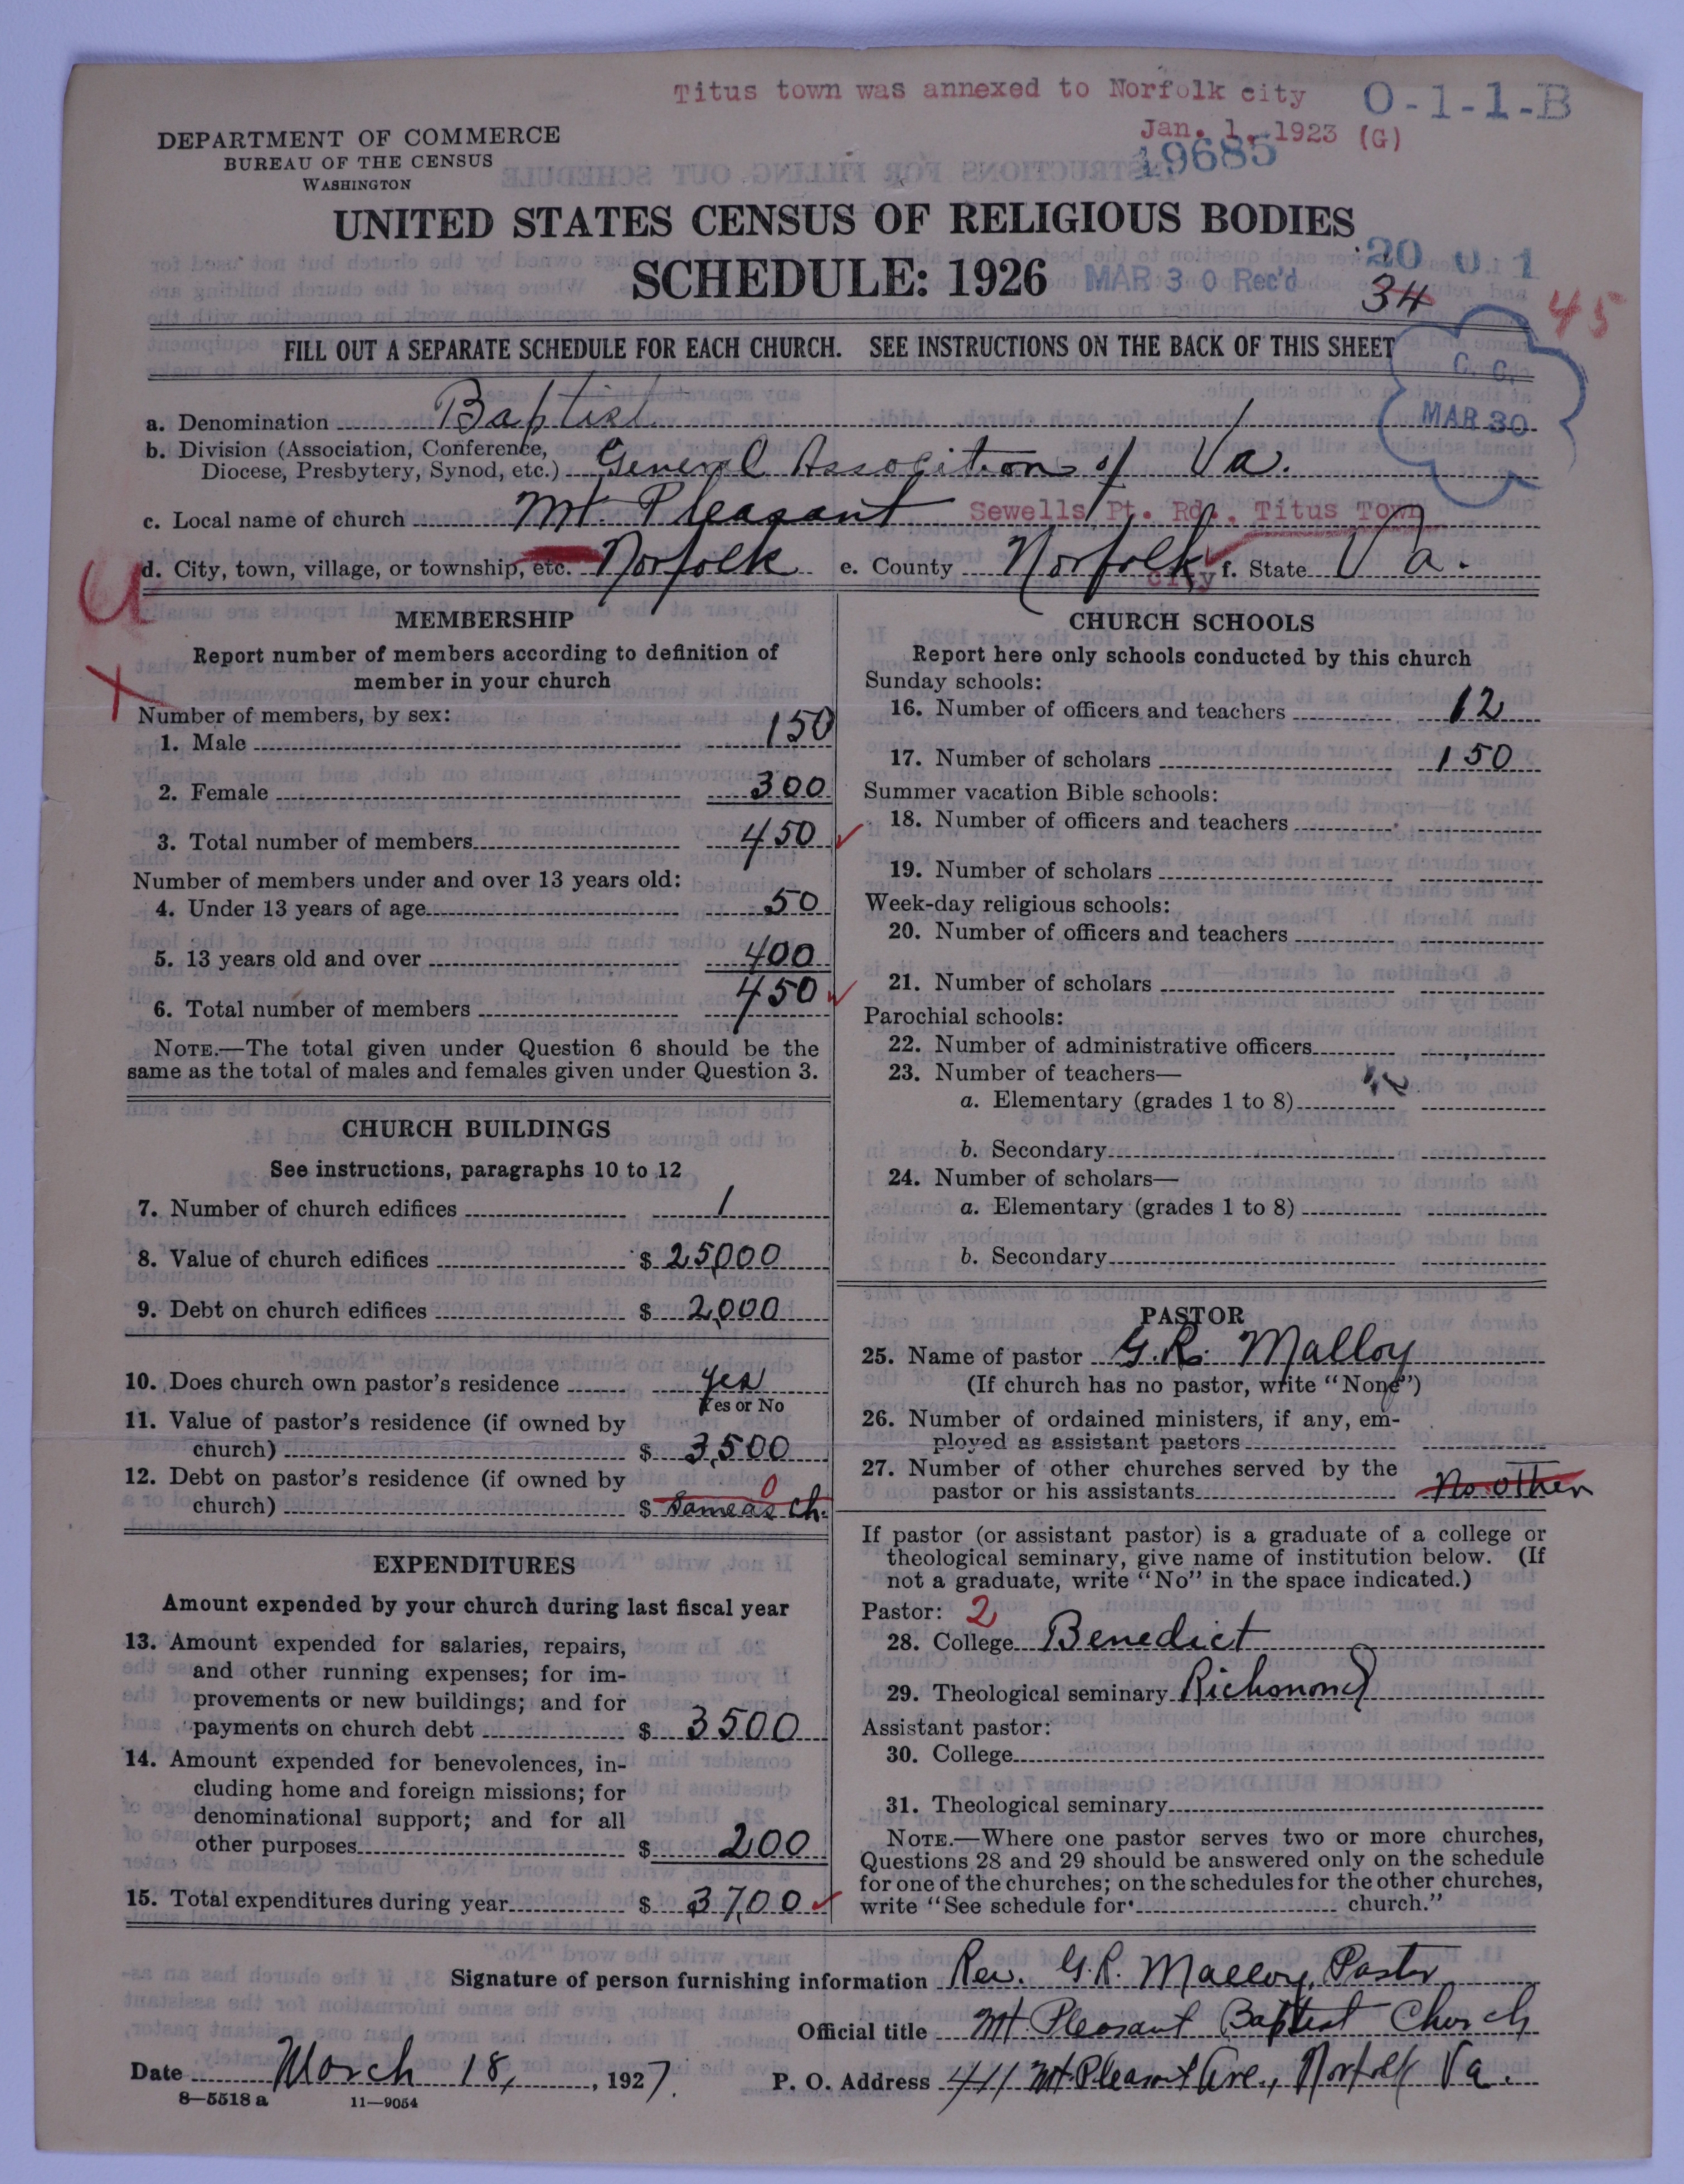 Titus town was annexed to Norfolk city
O-1-1-B
Jan. 1, 1923 (G)
19685
DEPARTMENT OF COMMERCE
BUREAU OF THE CENSUS
WASHINGTON
UNITED STATES CENSUS OF RELIGIOUS BODIES
SCHEDULE: 1926
MAR 30 Rec'd
20 0 1
34
45
FILL OUT A SEPARATE SCHEDULE FOR EACH CHURCH. SEE INSTRUCTIONS ON THE BACK OF THIS SHEET
C. C.
MAR 30
a. Denomination Baptist
b. Division (Association, Conference,
Diocese, Presbytery, Synod, etc.) General Association of Va.
c. Local name of church Mt. Pleasant Sewells Pt. Rd., Titus Town
d. City, town, village, or township, etc. Norfolk e. County Norfolk city f. State Va.
MEMBERSHIP
Report number of members according to definition of
member in your church
Number of members, by sex:
1. Male 150
2. Female 300
3. Total number of members 450
Number of members under and over 13 years old:
4. Under 13 years of age 50
5. 13 years old and over 400
6. Total number of members 450
NOTE.—The total given under Question 6 should be the
same as the total of males and females given under Question 3.
CHURCH BUILDINGS
See instructions, paragraphs 10 to 12
7. Number of church edifices 1
8. Value of church edifices $ 25,000
9. Debt on church edifices $ 2,000
10. Does church own pastor's residence yes
Yes or No
11. Value of pastor's residence (if owned by
church) $ 3,500
12. Debt on pastor's residence (if owned by
church) $ Same as ch. 0
EXPENDITURES
Amount expended by your church during last fiscal year
13. Amount expended for salaries, repairs,
and other running expenses; for im-
provements or new buildings; and for
payments on church debt $ 3500
14. Amount expended for benevolences, in-
cluding home and foreign missions; for
denominational support; and for all
other purposes $ 200
15. Total expenditures during year $ 3,700
CHURCH SCHOOLS
Report here only schools conducted by this church
Sunday schools:
16. Number of officers and teachers 12
17. Number of scholars 150
Summer vacation Bible schools:
18. Number of officers and teachers
19. Number of scholars
Week-day religious schools:
20. Number of officers and teachers
21. Number of scholars
Parochial schools:
22. Number of administrative officers
23. Number of teachers—
a. Elementary (grades 1 to 8)
b. Secondary
24. Number of scholars—
a. Elementary (grades 1 to 8)
b. Secondary
PASTOR
25. Name of pastor G. R. Malloy
(If church has no pastor, write "None")
26. Number of ordained ministers, if any, em-
ployed as assistant pastors
27. Number of other churches served by the
pastor or his assistants No other
If pastor (or assistant pastor) is a graduate of a college or
theological seminary, give name of institution below. (If
not a graduate, write "No" in the space indicated.)
Pastor: 2
28. College Benedict
29. Theological seminary Richmond
Assistant pastor:
30. College
31. Theological seminary
NOTE.—Where one pastor serves two or more churches,
Questions 28 and 29 should be answered only on the schedule
for one of the churches; on the schedules for the other churches,
write "See schedule for church."
Signature of person furnishing information Rev. G. R. Malloy, Pastor
Official title Mt. Pleasant Baptist Church
Date March 18, 1927. P. O. Address 411 Mt Pleasant Ave., Norfolk Va.
8—5518 a 11—9054